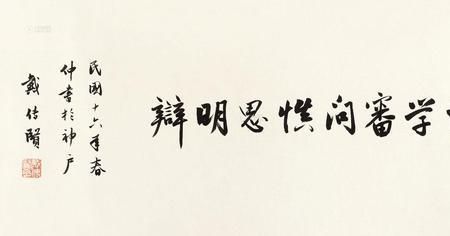 学審问慎思明辯
民國十六年春
仲書於神戶
戴傳賢